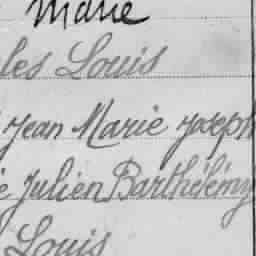 Marie
les Louis
Jean Marie Joseph
e Julien Barthélémy
Louis